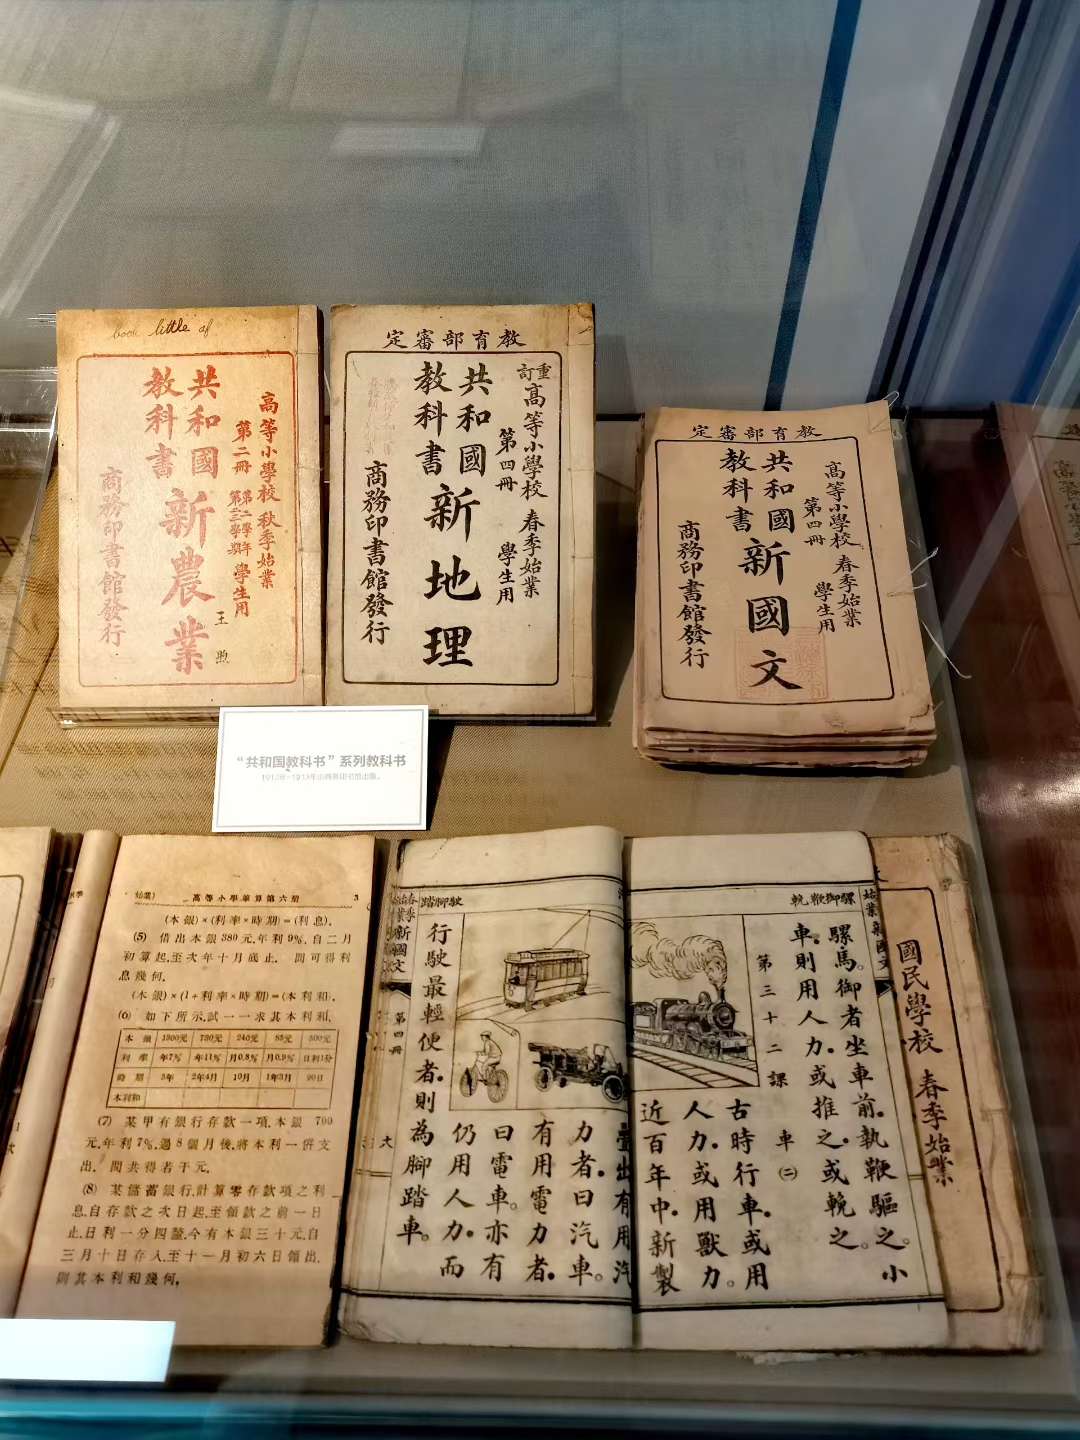 book little of
共和國
教科書
新農業
高等小學校 秋季始業
第二冊
第二學年
第三學期
學生用
商務印書館發行
王
教育部審定
共和國
教科書
新地理
重訂
高等小學校 春季始業
第四冊
學生用
商務印書館發行
教育部審定
共和國
教科書
新國文
高等小學校 春季始業
第四冊
學生用
商務印書館發行
“共和国教科书”系列教科书
高等小學筆算第六冊 3
(本銀)×(利率×時期)=(利息).
(5) 借出本銀380元,年利9%,自二月
初算起,至次年十月底止. 問可得利
息幾何.
(本銀)×(1+利率×時期)=(本利和).
(6) 如下所示,試一一求其本利和.
本銀 1300元 730元 240元 85元 500元
利率 年7% 年11% 月0.8% 月0.9% 日利1分
時期 3年 2年4月 10月 1年3月 90日
本利和
(7) 某甲有銀行存款一項,本銀 700
元,年利7%,過8個月後,將本利一併支
出. 問共得若干元.
(8) 某儲蓄銀行,計算零存款項之利
息,自存款之次日起,至領款之前一日
止,日利一分四釐,今有本銀三十元,自
三月十日存入,至十一月初六日領出,
則其本利和幾何.
騾御鞭軏
第三十二課 車(二)
古時行車。或用
人力。或用獸力。
近百年中。新製
有用汽
力者。曰汽車。
有用電力者。
曰電車。亦有
仍用人力。而
行駛最輕便者。則為腳踏車。
駛腳踏
新國文
第四冊
騾馬。御者坐車前。執鞭驅之。小
車。則用人力。或推之。或輓之。
國民學校 春季始業